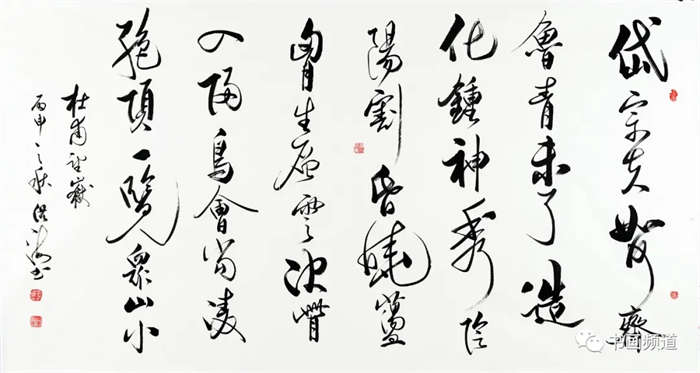 岱宗夫如何齊
魯青未了造
化鍾神秀陰
陽割昏曉盪
胷生层雲決眥
入歸鳥會當凌
絕頂一覽衆山小
杜甫望嶽
丙申之秋
书画频道